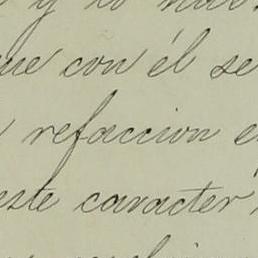 y lo mas
que con él se
refaccion e
este caracter